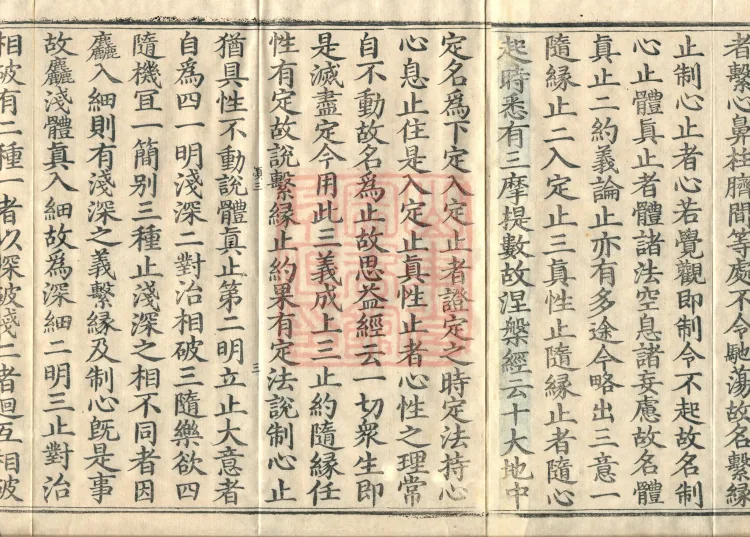 者繫心鼻柱臍間等處不令馳蕩故名繫緣
止制心止者心若覺觀即制令不起故名制
心止體真止者體諸法空息諸妄慮故名體
真止二約義論止亦有多途今略出三意一
隨緣止二入定止三真性止隨緣止者隨心
起時悉有三摩提數故涅槃經云十大地中
定名為下定入定止者證定之時定法持心
心息止住是入定止真性止者心性之理常
自不動故名為止故思益經云一切眾生即
是滅盡定今用此三義成上三止約隨緣任
性有定故說繫緣止約果有定法說制心止
猶具性不動說體真止第二明立止大意者
自為四一明淺深二對治相破三隨樂欲四
隨機冝一簡別三種止淺深之相不同者因
麤入細則有淺深之義繫緣及制心旣是事
故麤淺體真入細故為深細二明三止對治
相破有二種一者以深破淺二者迴互相破